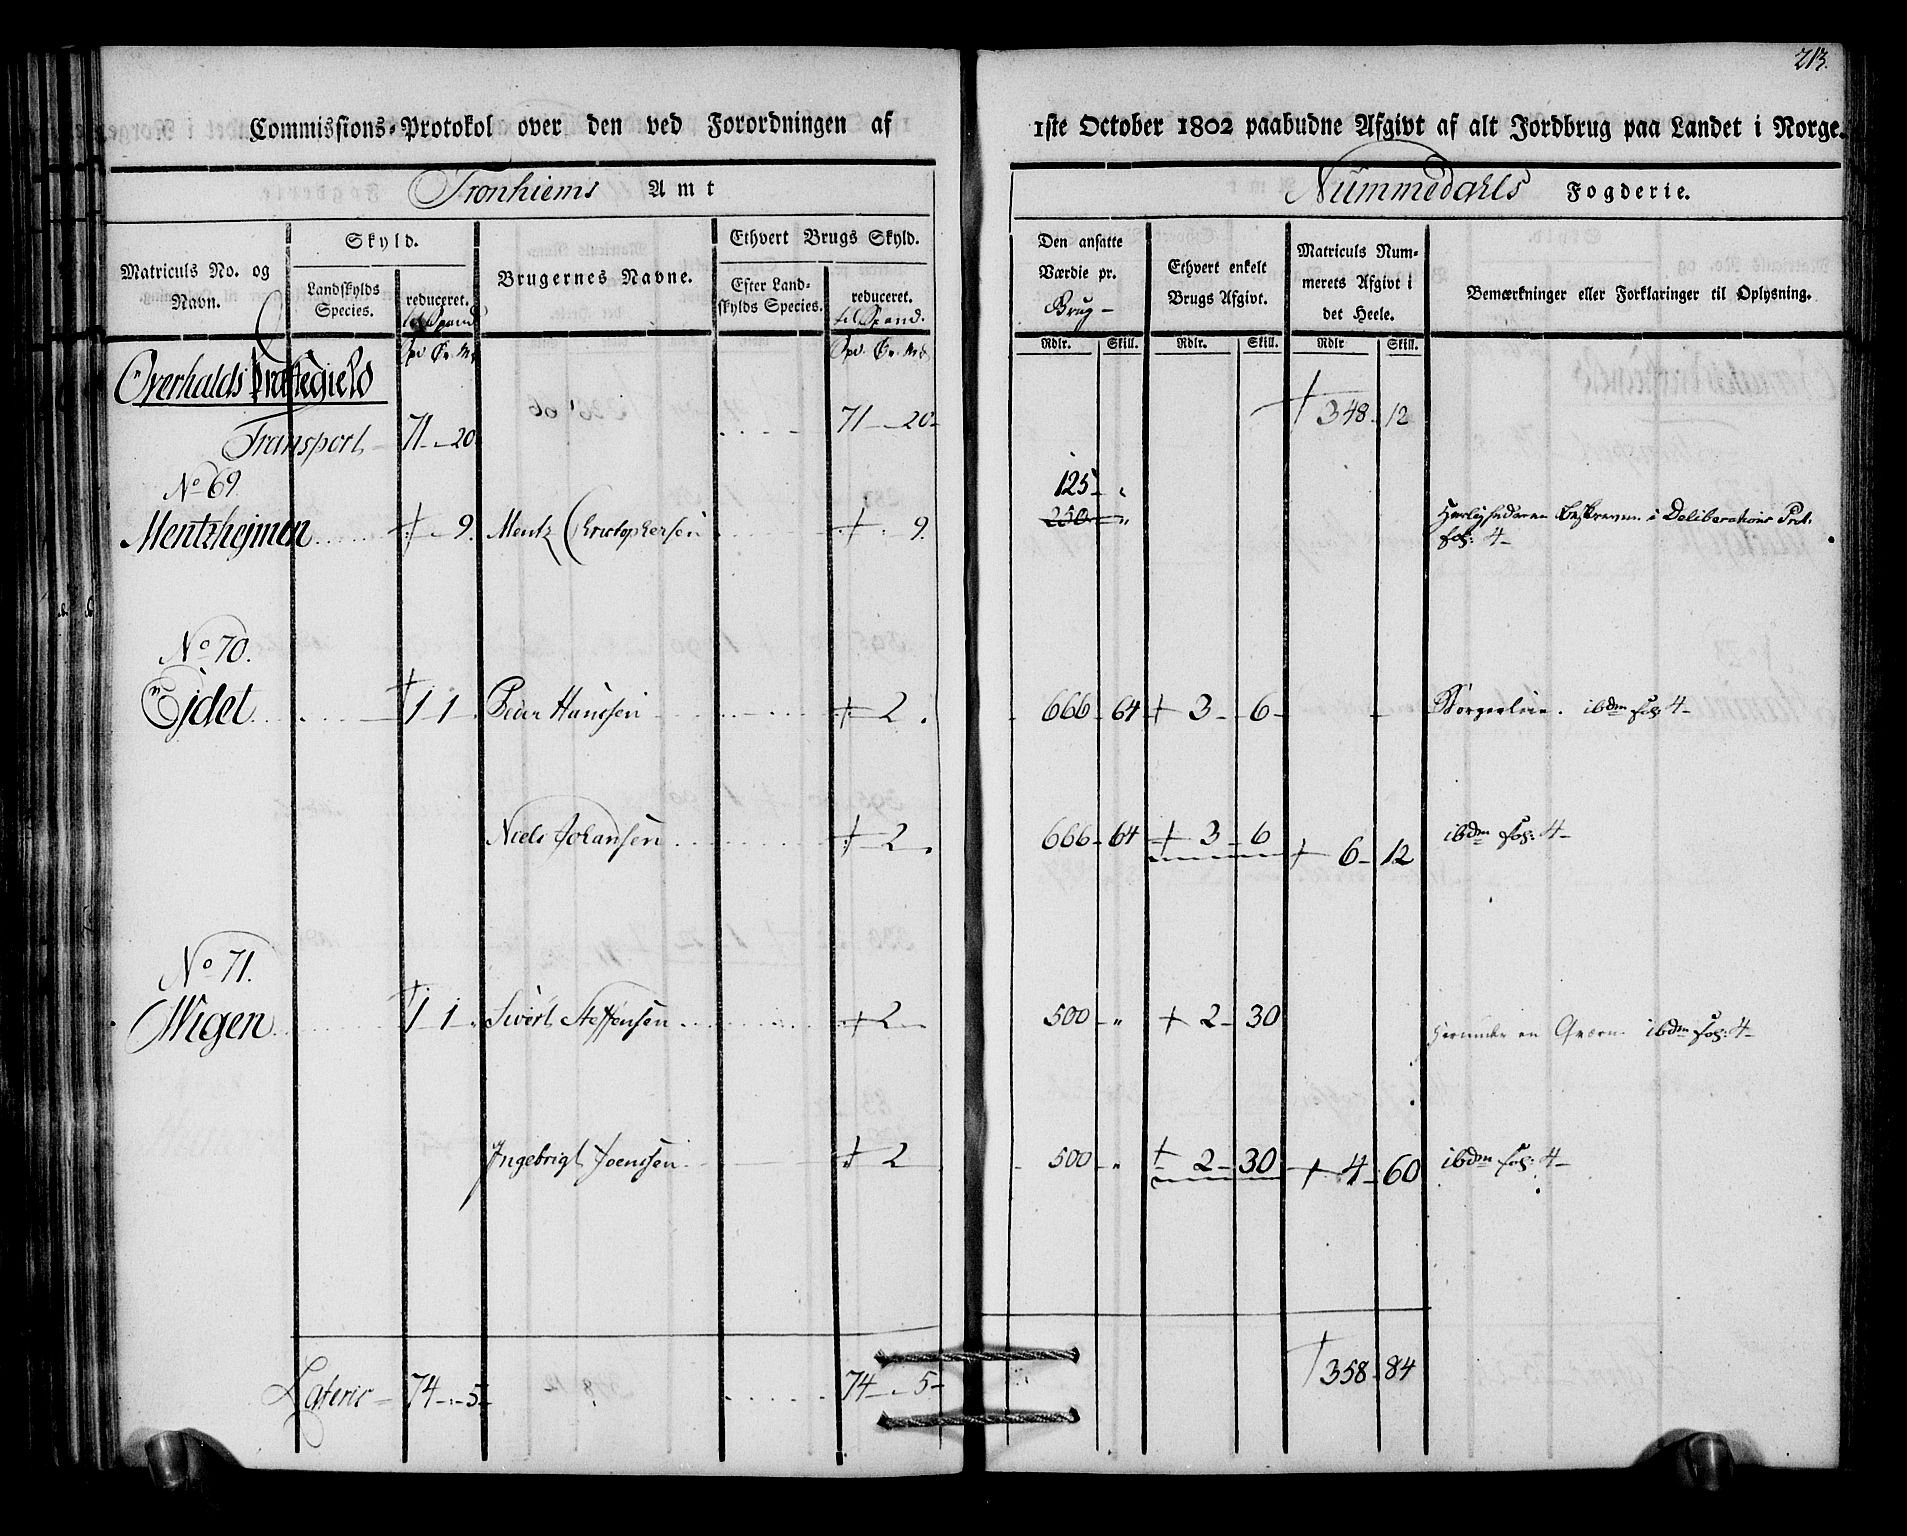 213.
Commissions-Protokol over den ved Forordningen af 1ste October 1802 paabudne Afgivt af alt Jordbrug paa Landet i Norge.
Tronhiems Amt
Nummedahls Fogderie.
Matriculs No. og Navn.
Skyld.
Landskylds Species.
reduceret. til Spand
Brugernes Navne.
Ethvert Brugs Skyld.
Efter Landskylds Species.
reduceret. til Spand.
Den ansatte Værdie pr. Brug
Ethvert enkelt Brugs Afgivt.
Matriculs Nummerets Afgivt i det Heele.
Bemærkninger eller Forklaringer til Oplysning.
Rdlr. Skill. Rdlr. Skill. Rdlr Skill.
Overhalds Præstegield
Transport 71 - 20 71 - 20 348 - 12
No 69.
125 -
Mentzhejmen - 9. Mentz Christophersen - 9. 250 Beskreven i Deliberations Prot. fol: 4
No 70.
Ejdet 1 - 1 Peder Hanssen 2 666 - 64 3 - 6 ibdm fol: 4
Niels Johansen 2 666 - 64 3 - 6 6 - 12 ibdm fol: 4
No 71.
Wigen 1 - 1 Sivert Steffensen 2 500 - " 2 - 30 Herunder en Qværn ibdm fol: 4
Ingebrigt Joenssen 2 500 - " 2 - 30 4 - 60 ibdm fol: 4
Lateris 74 - 5 74 - 5 358 - 84